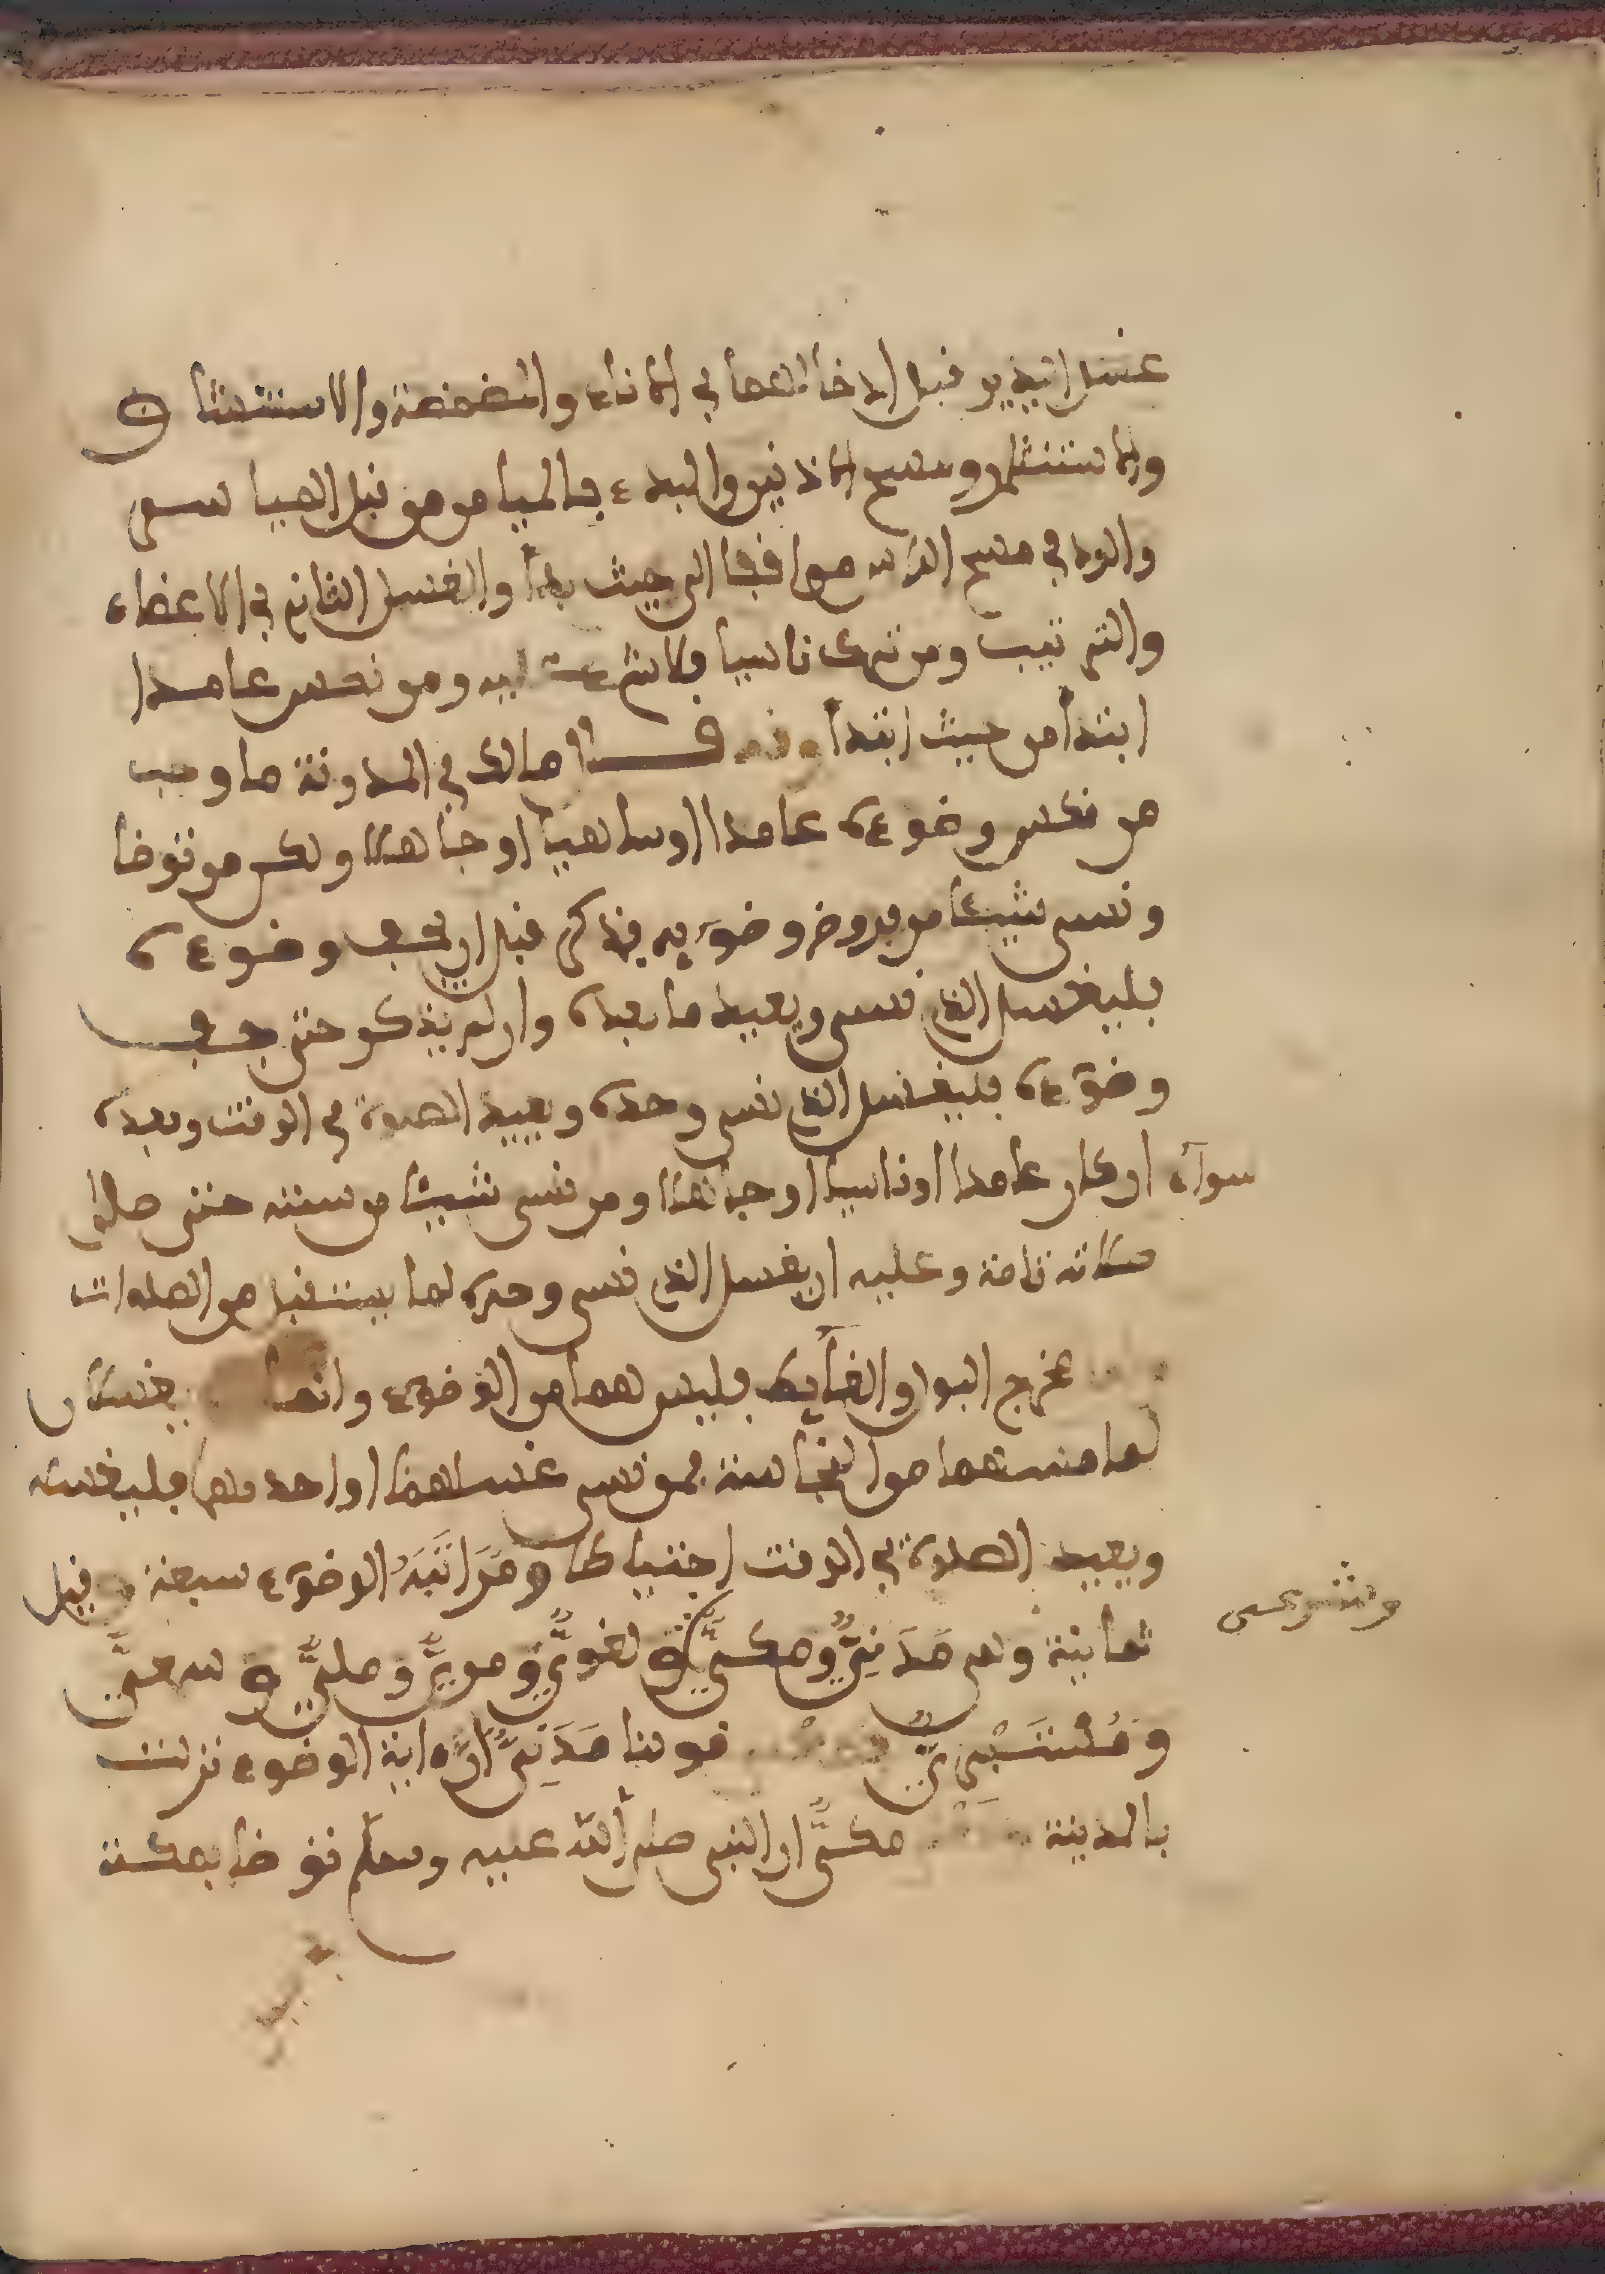 غسل اليدين قبل ادخالهما في الاناء والمضمضة والاستنشاق
والاستنثار ومسح الاذنين والبدء بالميامن من قبل المياسر
والرد في مسح الراس موافقا الى حيث بدأ والغسل الثاني في الاعضاء
والترتيب ومن ترك ناسيا فلا شيء عليه ومن نكس عامدا
ابتدأ من حيث ابتدأ قال مالك في المدونة ما وجب
من نكس وضوءه عامدا او ساهيا او جاهلا ولكن من توضا
ونسى شيئا من فروض وضوءيه فذكر قبل ان يجف وضوءه
فليغسل الذي نسى ويعيد ما بعده وان لم يذكر حتى جف
وضوءه فليغسل الذي نسى وحده ويعيد الصلوة في الوقت وبعده
سواء ان كان عامدا او ناسيا او جاهلا ومن نسى شيئا من سننه حتى صلى
صلاته تامة وعليه ان يغسل الذي نسى وحده لما يستقبل من الصلوات
مخرج البول والغايط فليس هما من الوضوء وانما يغسلان
لما مسهما من النجاسة فمن نسى غسلهما او احدهما فليغسله
ويعيد الصلوة في الوقت احتياطا ومراتب الوضوء سبعة وقيل
ثمانية وهي مدني ومكي ولغوي ومروي وملي وسمعي
ومستبري قولنا مدني ان اية الوضوء نزلت
بالمدينة مكي ان النبي صلى الله عليه وسلم توضا بمكة